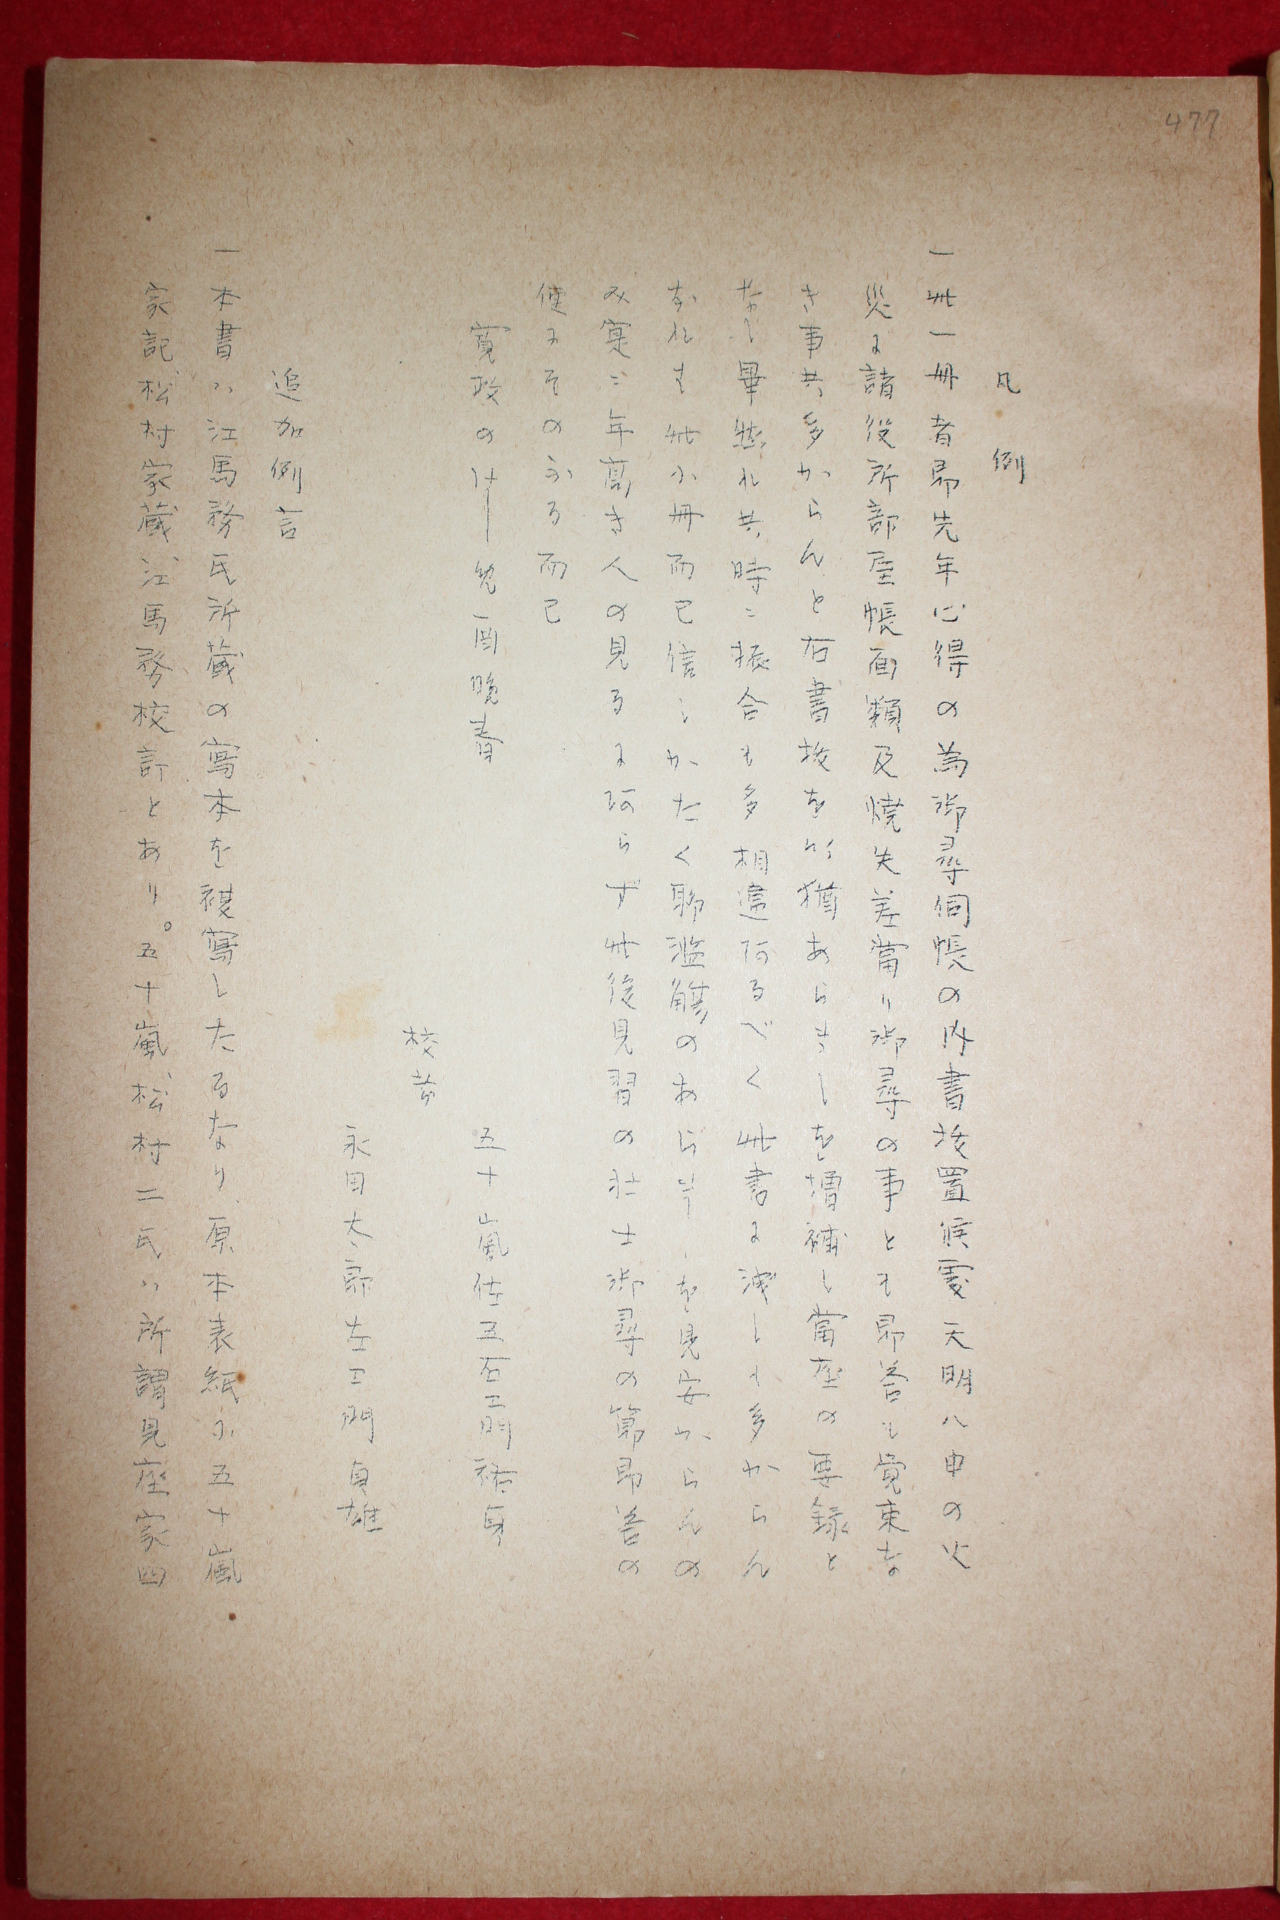 477
凡例
一此一冊者昴先年心得の為御尋伺帳の内書抜置候處天明八申の火
災に諸役所部屋帳面類及焼失差當り御尋の事とも即答も覚束な
き事共多からんと右書抜を以猶あらましを増補し當座の要録と
なし畢然れ共時に振合も多相違阿るべく此書に洩しも多からん
なれも此小冊而已信しかたく聊濫觴のあらましを見安からんの
み寔ニ年高き人の見るに阿らず此後見習の壮士御尋の節即答の
便にそのふる而已
寛政の 酉晩春
五十嵐佐五右エ門祐身
校者
永田太郎左エ門貞雄
追加例言
一本書ハ江馬務氏所蔵の寫本を複寫したるなり、原本表紙に五十嵐
家記、松村家蔵、江馬務校訂とあり。五十嵐、松村二氏ハ所謂見座家四